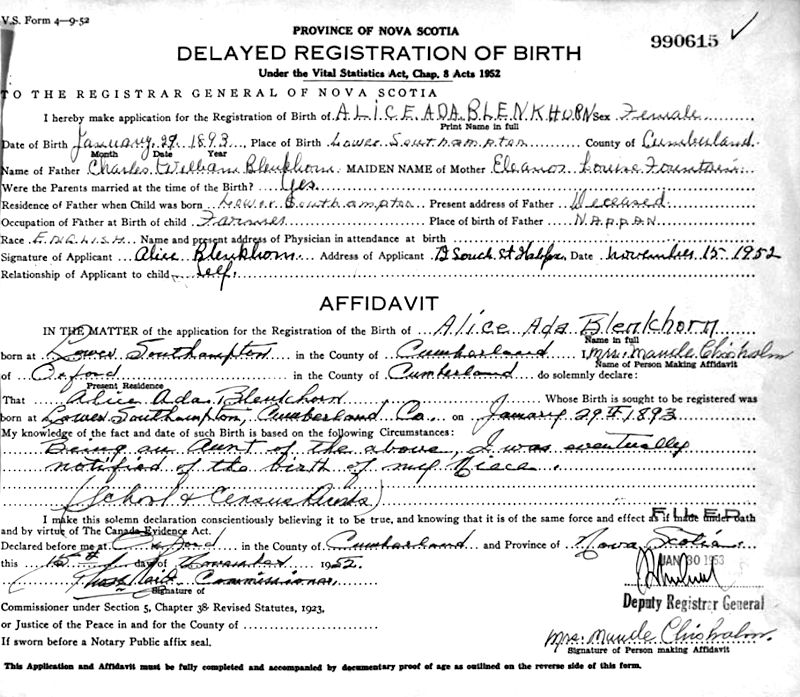 V.S. Form 4—9-52
990615 ✓
PROVINCE OF NOVA SCOTIA
DELAYED REGISTRATION OF BIRTH
Under the Vital Statistics Act, Chap. 8 Acts 1952
TO THE REGISTRAR GENERAL OF NOVA SCOTIA
I hereby make application for the Registration of Birth of ALICE ADA BLENKHORN Sex Female
Print Name in full
Date of Birth January 29 1893 Place of Birth Lower Southampton County of Cumberland
Month Date Year
Name of Father Charles William Blenkhorn MAIDEN NAME of Mother Eleanor Louise Fountain
Were the Parents married at the time of the Birth? Yes
Residence of Father when Child was born Lower Southampton Present address of Father Deceased
Occupation of Father at Birth of child Farmer Place of birth of Father NAPPAN
Race ENGLISH Name and present address of Physician in attendance at birth
Signature of Applicant Alice Blenkhorn Address of Applicant South St Halifax Date November 15 1952
Relationship of Applicant to child Self.
AFFIDAVIT
IN THE MATTER of the application for the Registration of the Birth of Alice Ada Blenkhorn
Name in full
born at Lower Southampton in the County of Cumberland I, Mrs. Maude Chisholm
Name of Person Making Affidavit
of Oxford in the County of Cumberland do solemnly declare:
Present Residence
That Alice Ada Blenkhorn Whose Birth is sought to be registered was
born at Lower Southampton, Cumberland Co. on January 29th 1893
My knowledge of the fact and date of such Birth is based on the following Circumstances:
Being an Aunt of the above, I was eventually
notified of the birth of my Niece.
(School & Census
I make this solemn declaration conscientiously believing it to be true, and knowing that it is of the same force and effect as if made under oath
and by virtue of The Canada Evidence Act.
FILED
Declared before me at Oxford in the County of Cumberland and Province of Nova Scotia
this 15th day of November 1952.
JAN 30 1953
Commissioner
Signature of
Deputy Registrar General
Commissioner under Section 5, Chapter 38 Revised Statutes, 1923,
or Justice of the Peace in and for the County of
If sworn before a Notary Public affix seal.
Mrs. Maude Chisholm.
Signature of Person making Affidavit
This Application and Affidavit must be fully completed and accompanied by documentary proof of age as outlined on the reverse side of this form.